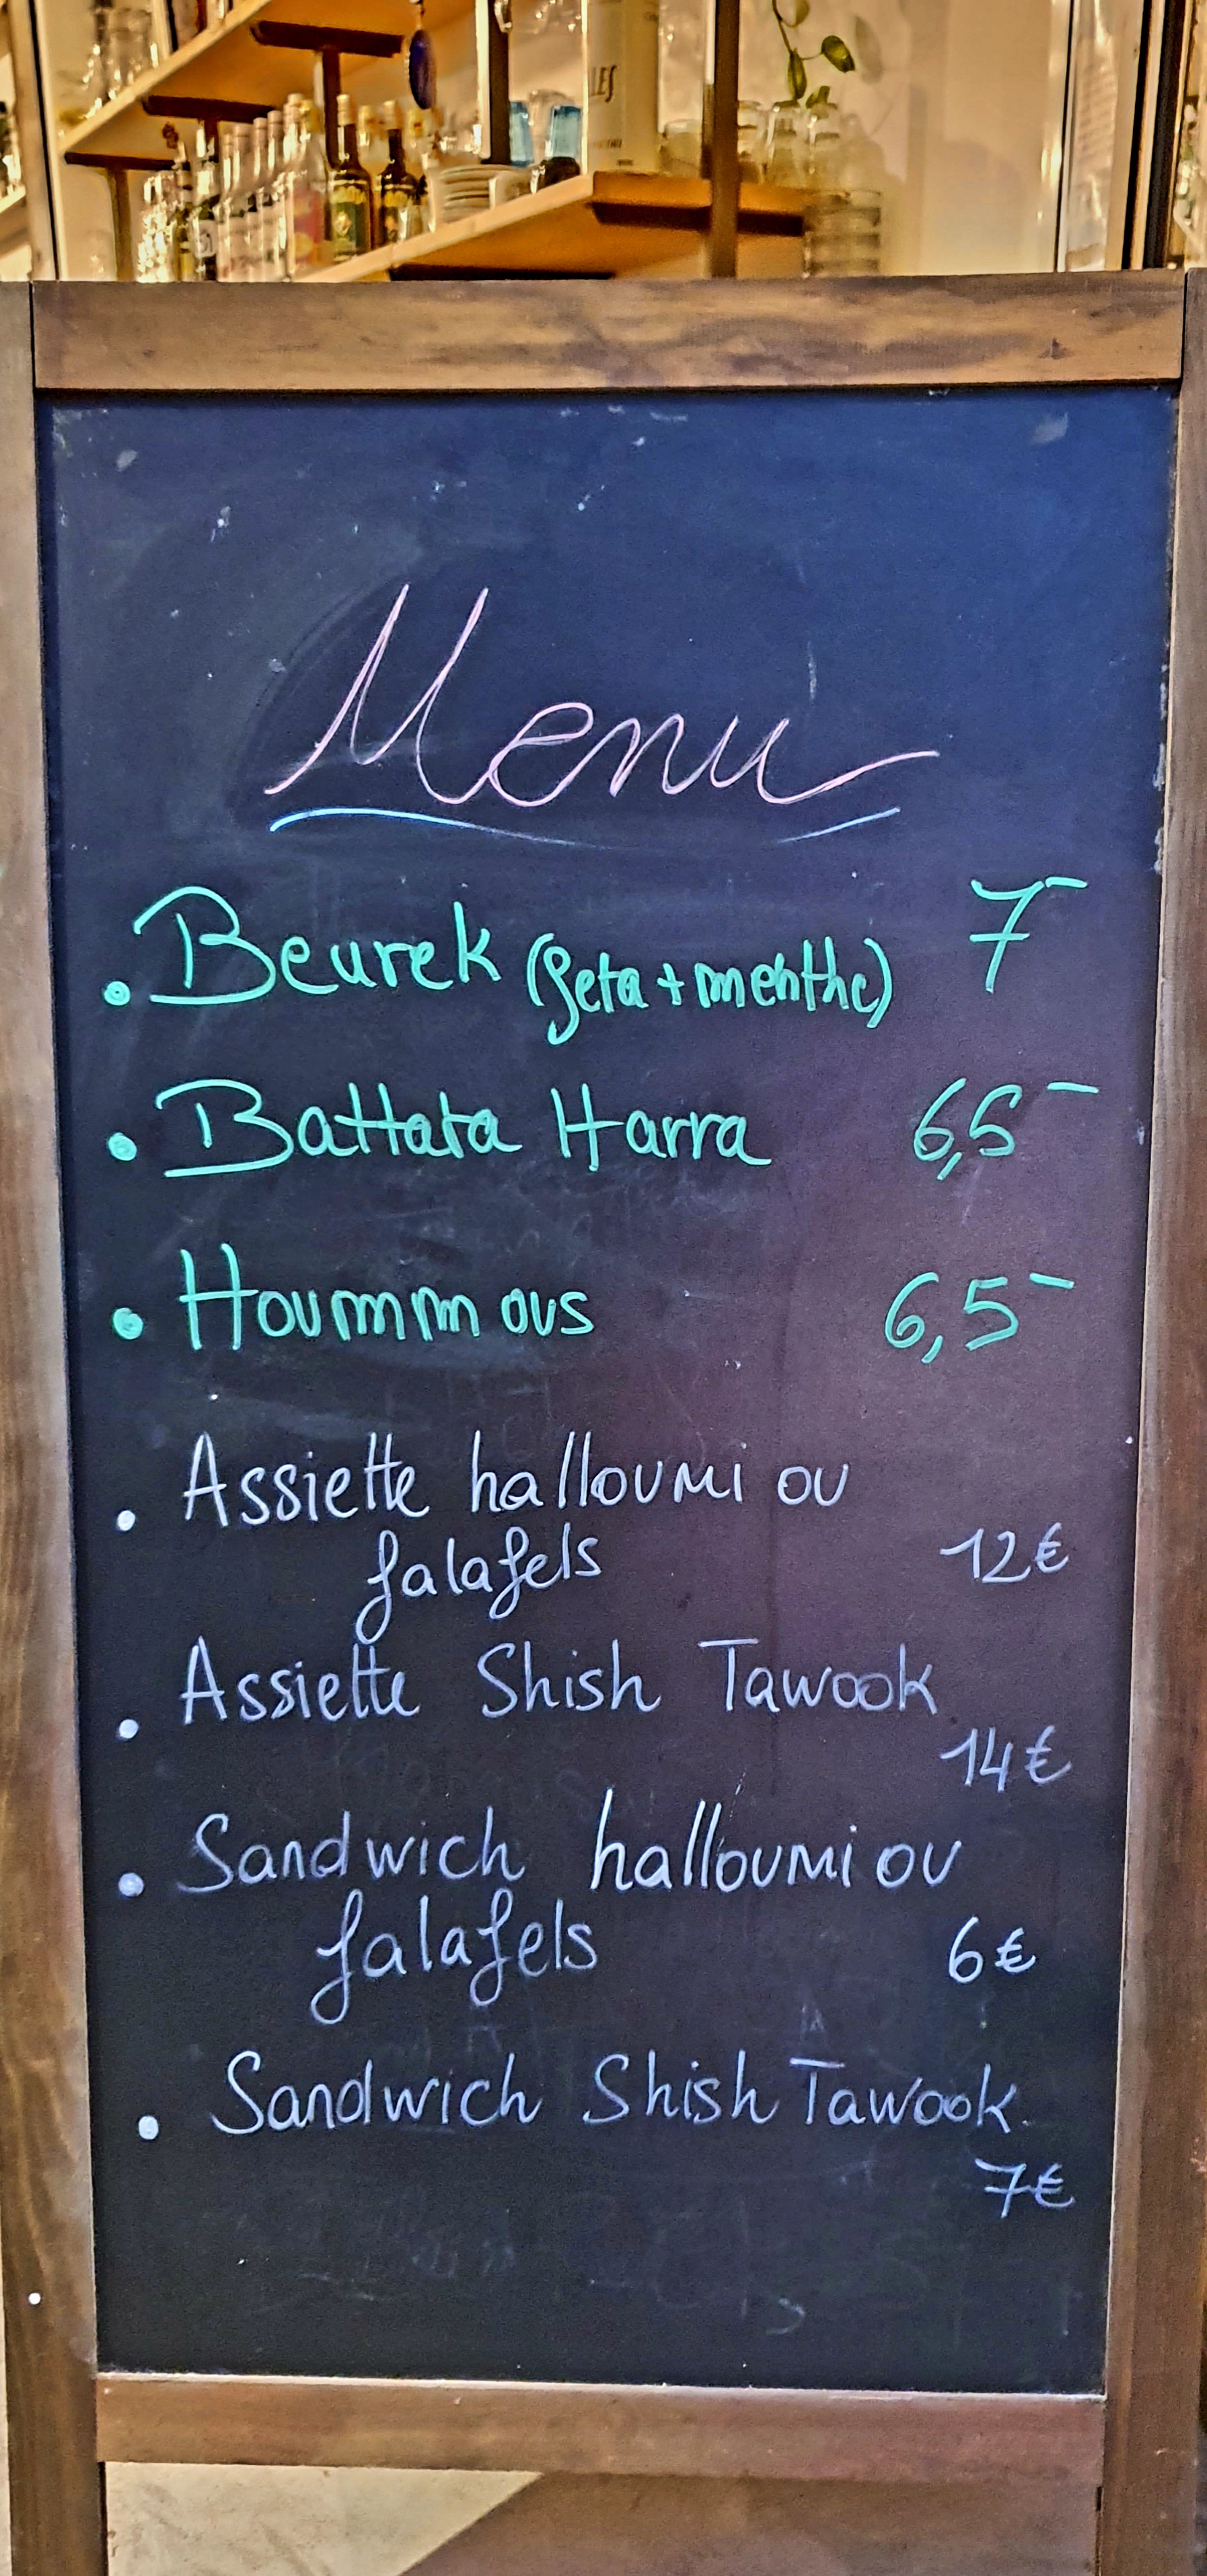 LES
Menu
. Beurek (feta + menthe) 7-
. Battata Harra 6,5-
. Hoummous 6,5-
. Assiette halloumi ou
falafels 12€
. Assiette Shish Tawook
14€
. Sandwich halloumi ou
falafels 6€
. Sandwich Shish Tawook
7€